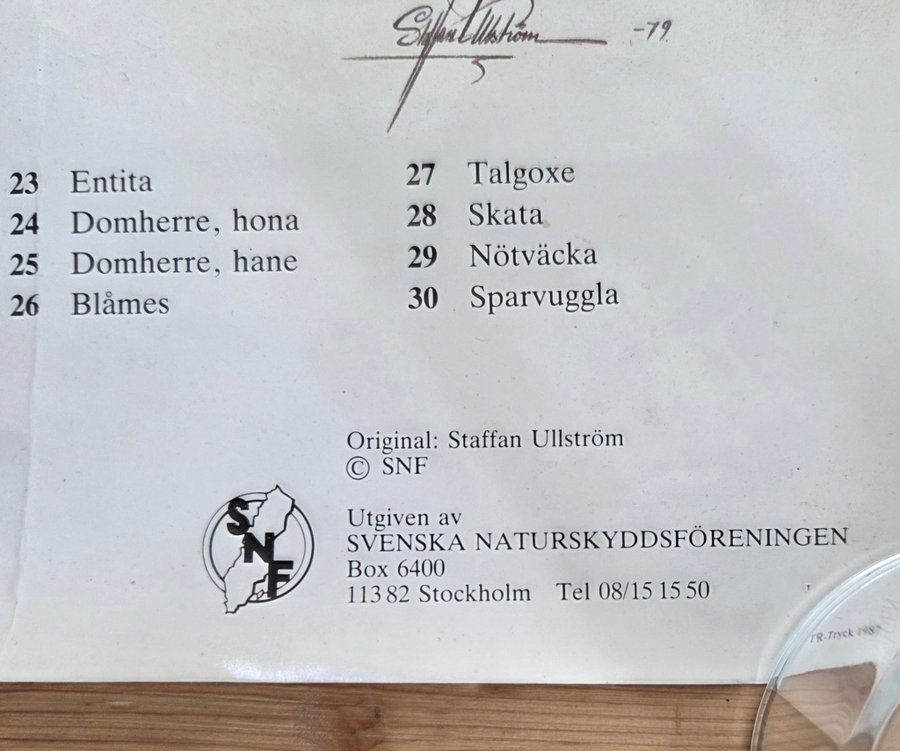 Staffan Ullström -79
23 Entita
24 Domherre, hona
25 Domherre, hane
26 Blåmes
27 Talgoxe
28 Skata
29 Nötväcka
30 Sparvuggla
Original: Staffan Ullström
© SNF
SNF
Utgiven av
SVENSKA NATURSKYDDSFÖRENINGEN
Box 6400
113 82 Stockholm Tel 08/15 15 50
TR-Tryck